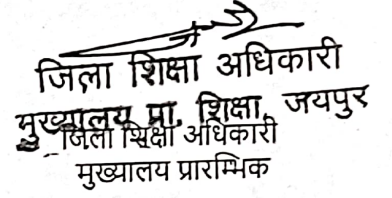 जिला शिक्षा अधिकारी
मुख्यालय प्रा. शिक्षा, जयपुर
जिला शिक्षा अधिकारी
मुख्यालय प्रारम्भिक